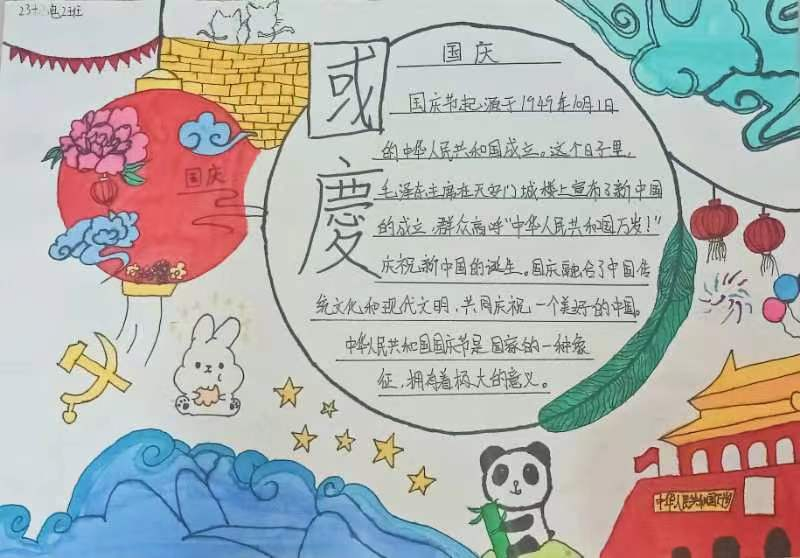 电2班
國慶
国庆
国庆
国庆节起源于1949年10月1日
的中华人民共和国成立。这个日子里,
毛泽东主席在天安门城楼上宣布了新中国
的成立,群众高呼"中华人民共和国万岁!"
庆祝新中国的诞生。国庆融合了中国传
统文化和现代文明,共同庆祝一个美好的中国。
中华人民共和国国庆节是国家的一种象
征,拥有着极大的意义。
中华人民共和国万岁